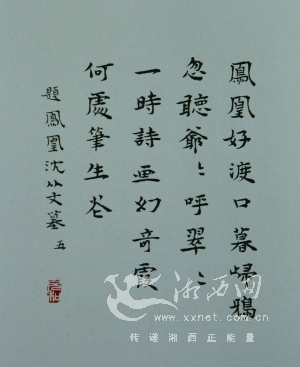 鳳凰好渡口暮歸鴉
忽聽爺〻呼翠〻
一時詩画幻奇霞
何處筆生花
題鳳凰沈从文墓 五
湘西网
www.xxnet.com.cn
传递湘西正能量